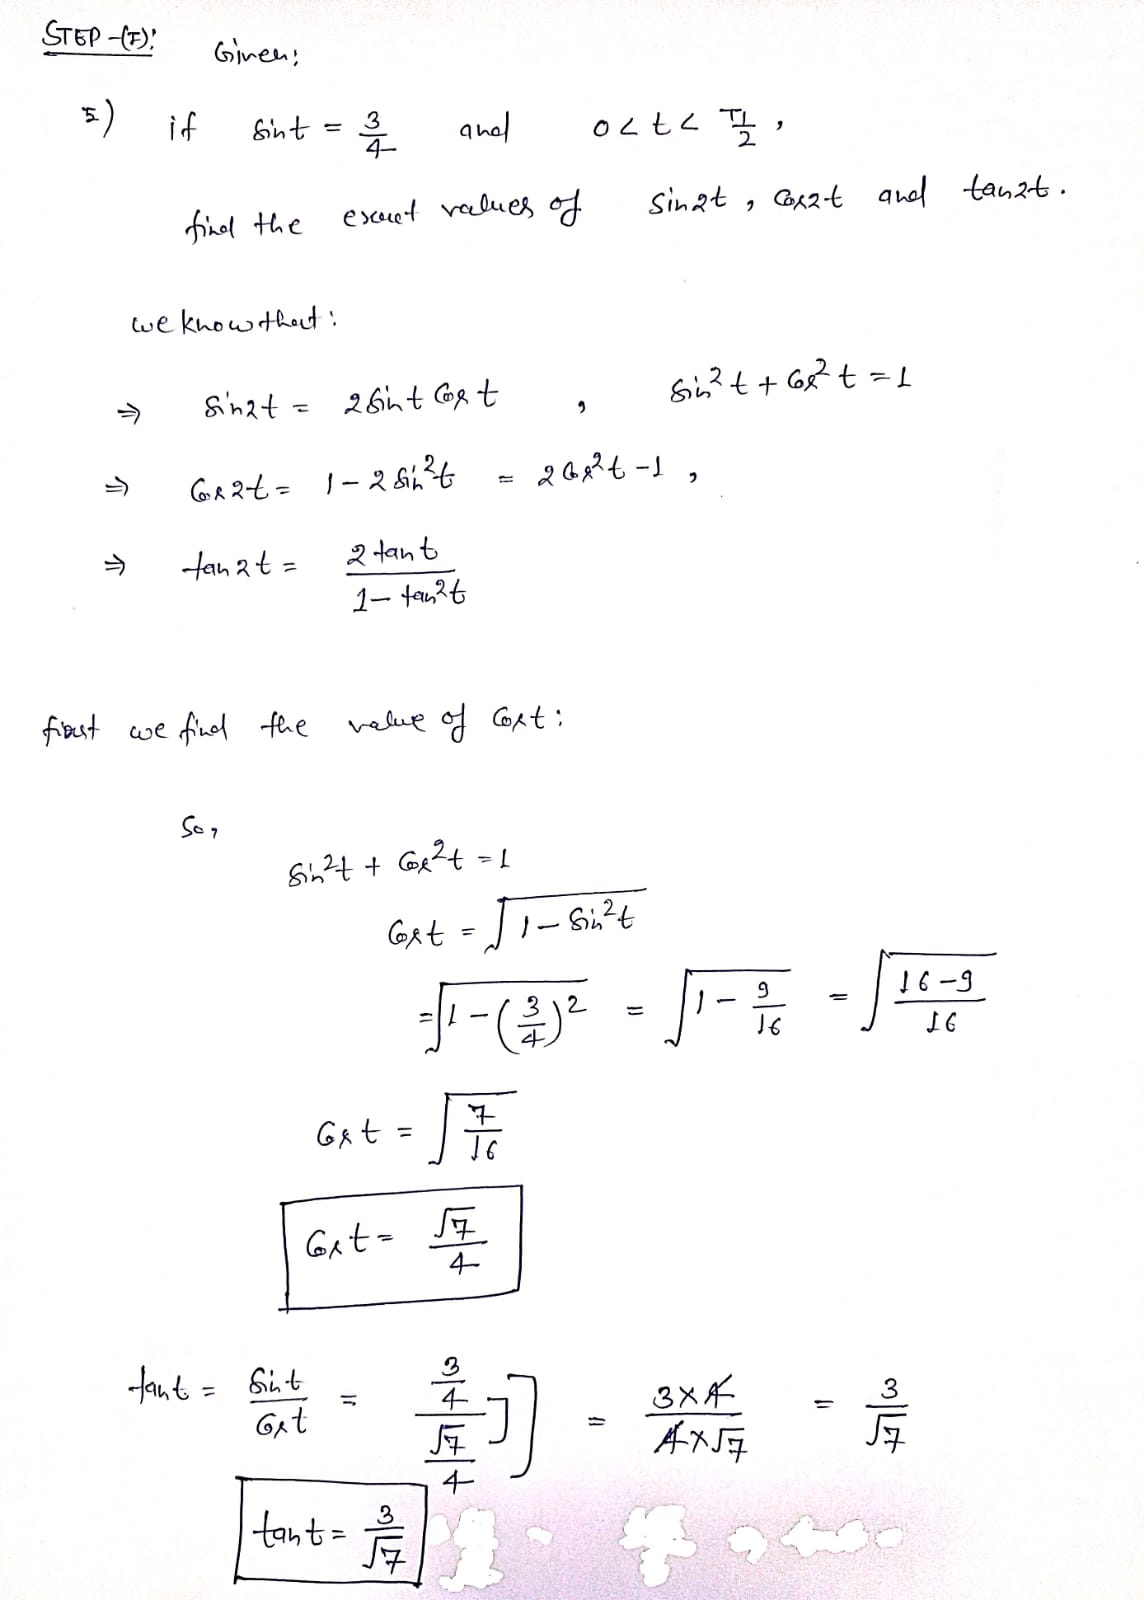 STEP-(I):
Given:
5) if sint = 3/4 and 0<t<π/2,
find the exact values of sin2t, cos2t and tan2t.
we know that:
⇒ sin2t = 2sint cost , sin²t + cos²t = 1
⇒ cos2t = 1 - 2sin²t = 2cos²t - 1 ,
⇒ tan2t = 2tant / 1 - tan²t
first we find the value of cost:
So,
sin²t + cos²t = 1
cost = √(1 - sin²t)
= √(1 - (3/4)²) = √(1 - 9/16) = √((16-9)/16)
cost = √(7/16)
cost = √7/4
tant = sint/cost = (3/4)/(√7/4) = 3×4/4×√7 = 3/√7
tant = 3/√7